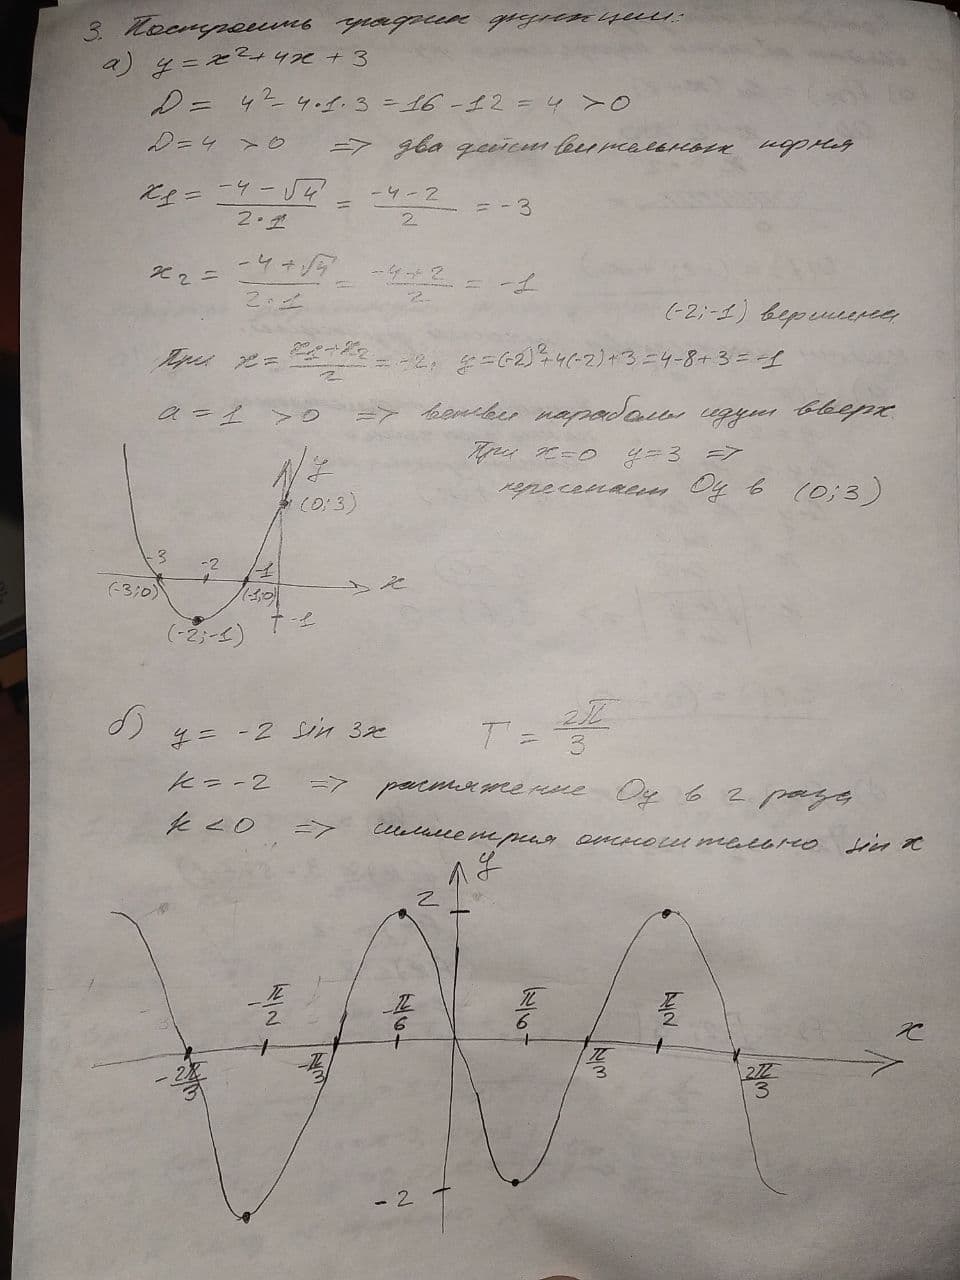 3. Построить график функции:
а) y = x² + 4x + 3
D = 4² - 4·1·3 = 16 - 12 = 4 > 0
D = 4 > 0 => два действительных корня
x₁ = (-4 - √4)/(2·1) = (-4-2)/2 = -3
x₂ = (-4 + √4)/(2·1) = (-4+2)/2 = -1
(-2;-1) вершина
При x = (x₁+x₂)/2 = -2, y = (-2)² + 4(-2) + 3 = 4 - 8 + 3 = -1
a = 1 > 0 => ветви параболы идут вверх
При x=0 y=3 =>
пересекает Oy в (0;3)
y
(0;3)
-3 -2 -1
x
(-3;0) (-1;0)
-1
(-2;-1)
б) y = -2 sin 3x T = 2π/3
k = -2 => растяжение Oy в 2 раза
k < 0 => симметрия относительно sin x
y
2
-π/2 -π/6 π/6 π/2 x
-2π/3 -π/3 π/3 2π/3
-2